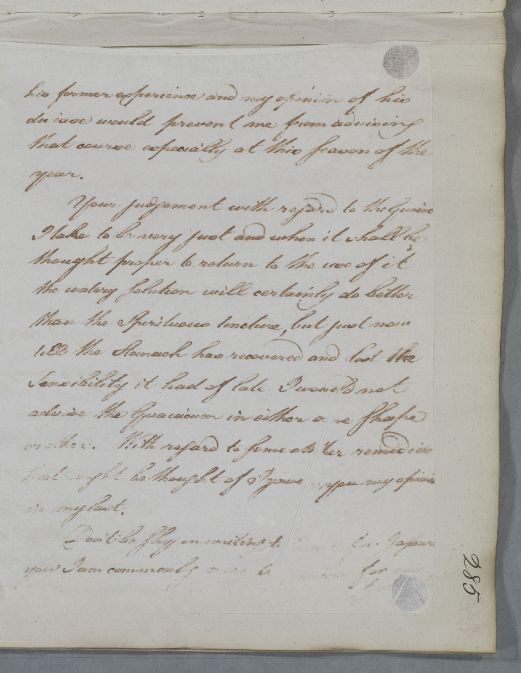 his former experience and my opinion of his
disease would prevent me from advising
that course especially at this season of the
year.
Your judgement with regard to the Guaiac
I take to be very just and when it shall be
thought proper to return to the use of it
the watery Solution will certainly do better
than the Spirituous tincture, but just now
till the Stomach has recovered and lost the
Sensibility it had of late I would not
advise the Guaiacum in either one Shape
or other. With regard to some other remedies
that might be thought of I gave you my opinion
in my last.
Don't be shy in writing to for I assure
you I am commonly for
285